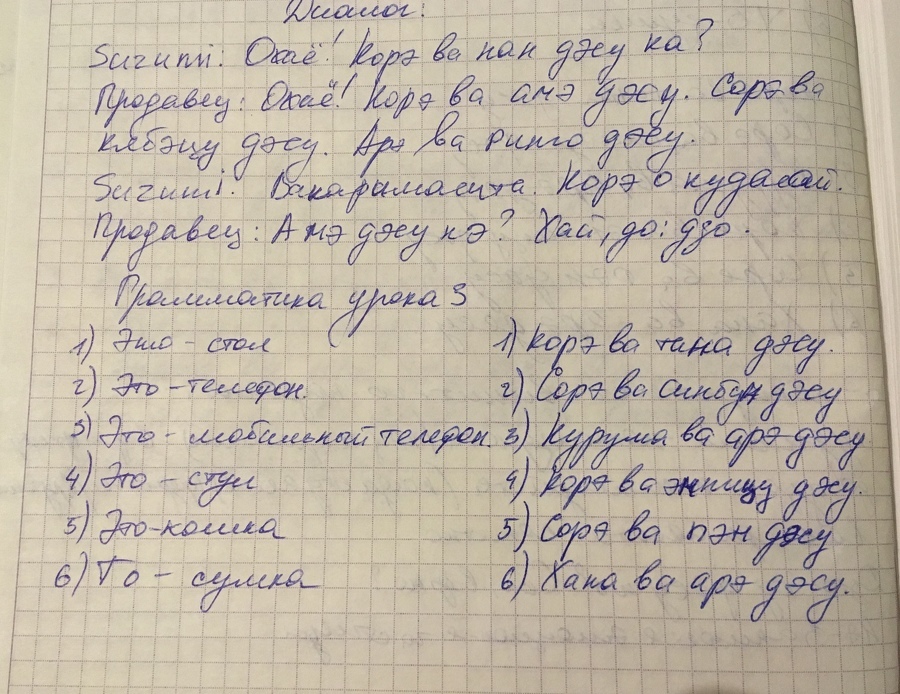 Диалог:
Suzumi: Охаё! Корэ ва нан дэсу ка?
Продавец: Охаё! Корэ ва амэ дэсу. Сорэ ва
кябэцу дэсу. Арэ ва ринго дэсу.
Suzumi: Вакаримасита. Корэ о кудасай.
Продавец: Амэ дэсу нэ? Хай, до:дзо.
Грамматика урока 3
1) Это - стол 1) Корэ ва тана дэсу.
2) Это - телефон. 2) Сорэ ва синбун дэсу
3) Это - мобильный телефон 3) Курума ва арэ дэсу
4) Это - стул 4) Корэ ва энпицу дэсу.
5) Это - кошка 5) Сорэ ва пэн дэсу
6) То - сумка 6) Хана ва арэ дэсу.